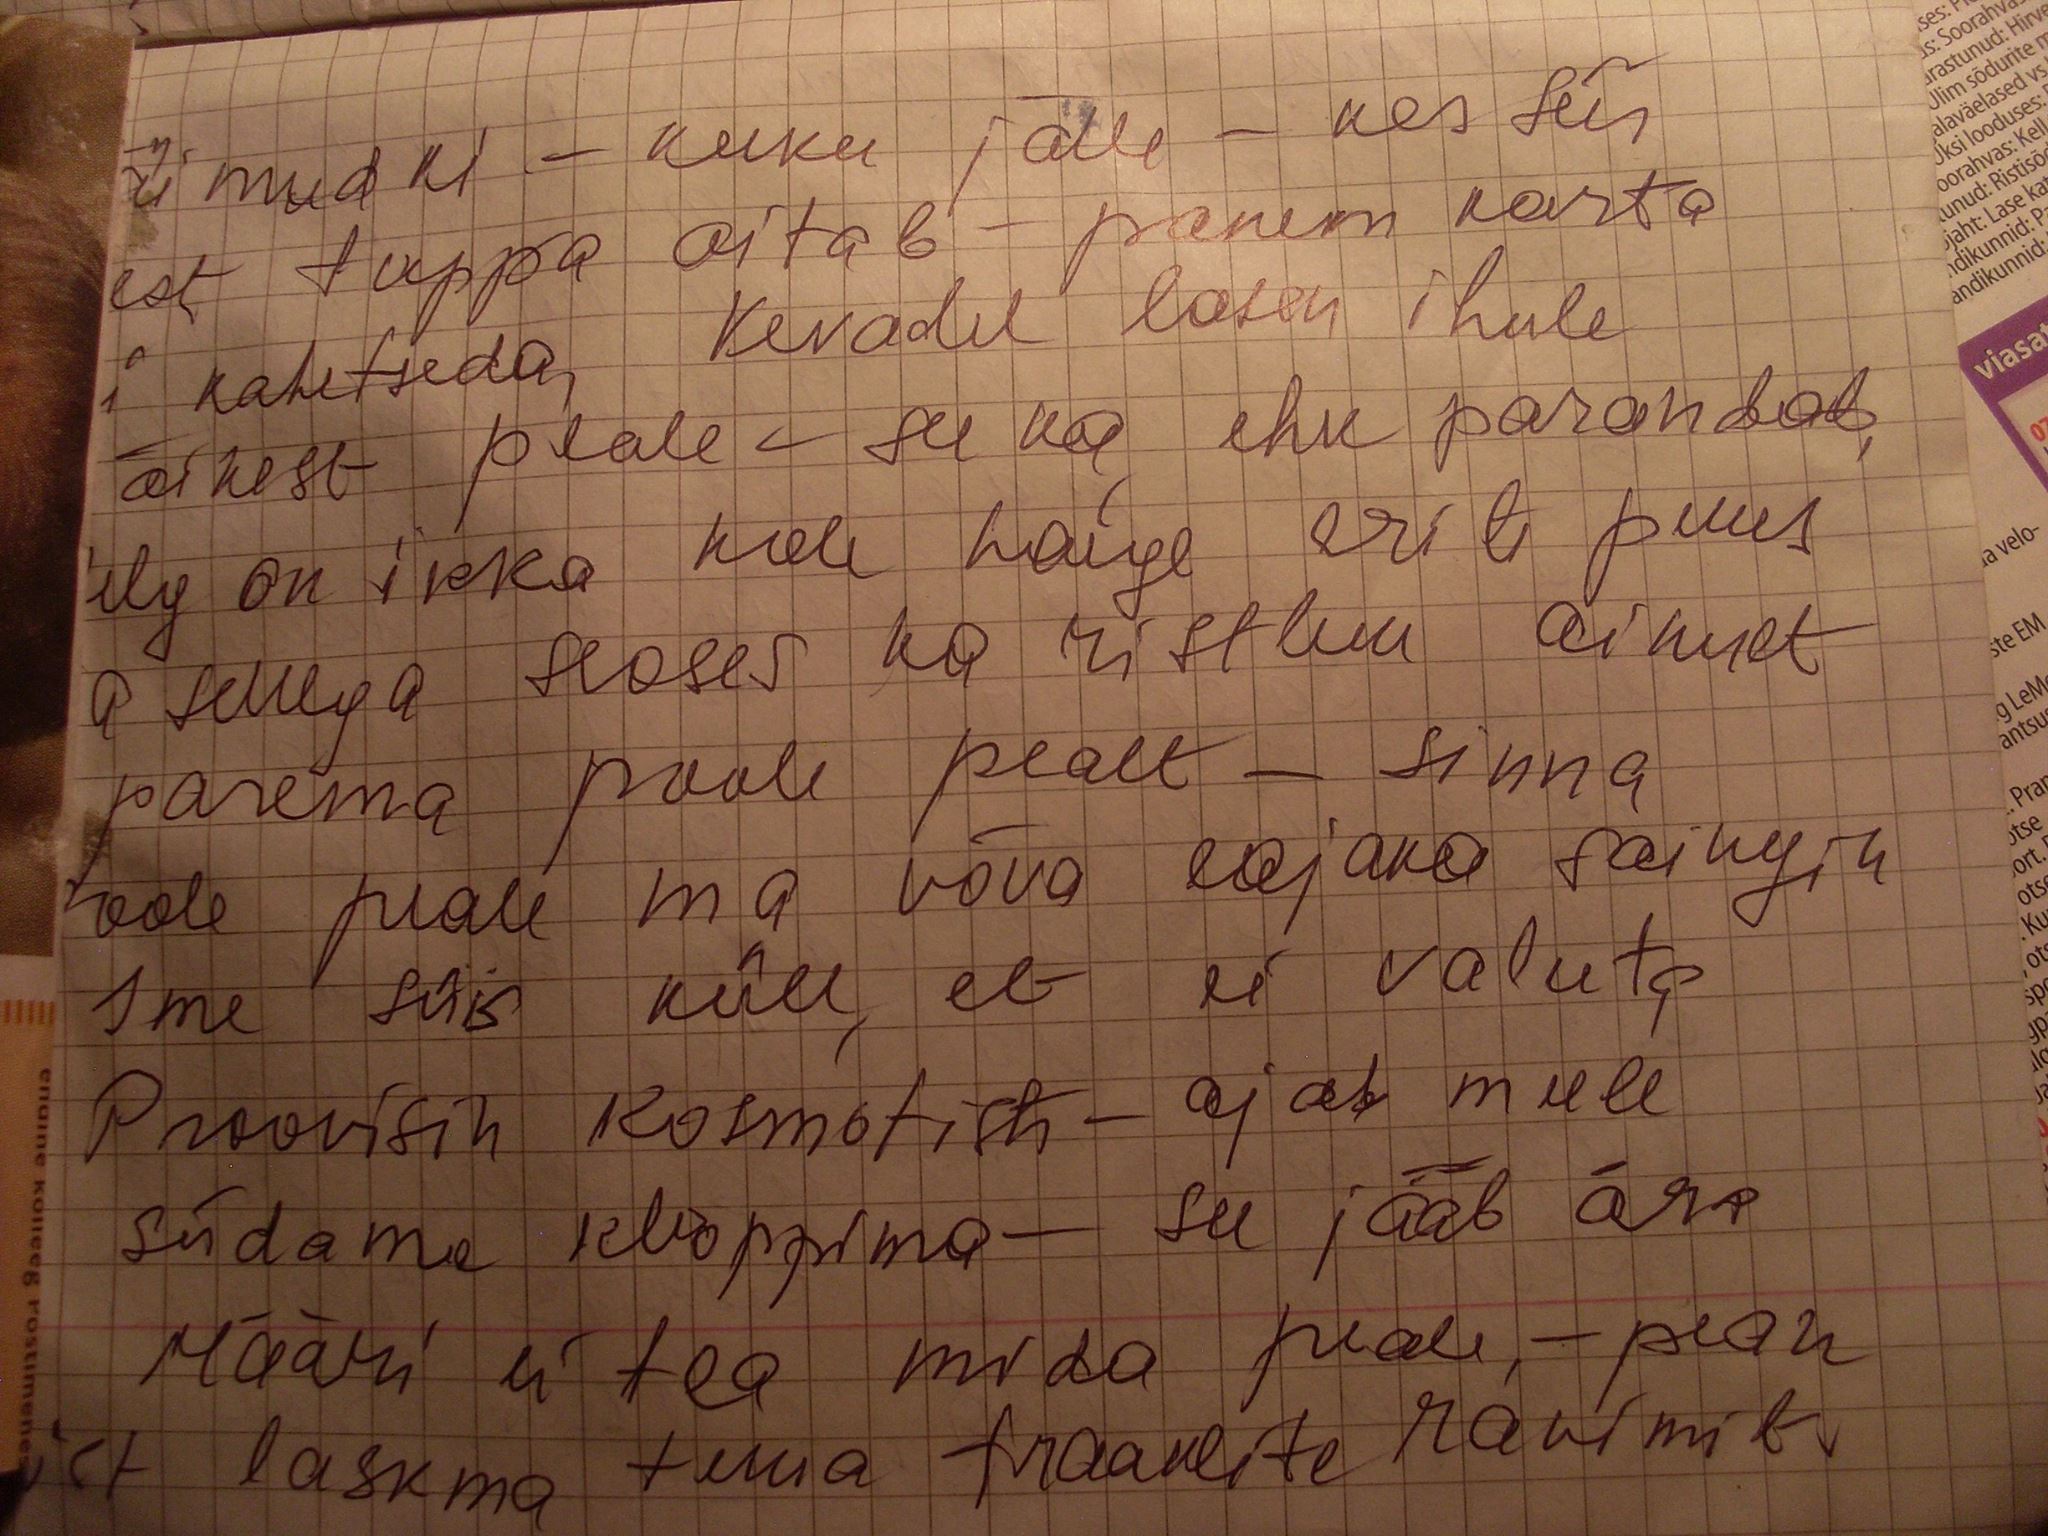 ri mudki – kuku jälle – kes siis
est tuppa aitab – panem karta
i kahetseda, Kevadel lasen ihule
äikest peale – see ka ehk parandab,
ülg on ikka kole haige eriti puus
a sellega seoses ka ristluu ainult
parema poole pealt – sinna
poole peale ma võva lajaka saingin
Ime siis küll, et ei valuta
Proovisin kosmotisti – ajab mull
südame kloppima – see jääb ära
Määri ei tea mida peale, – pean
ist laskma tuua traavlite ravimit
ses: 
us: Soorahvas
arastunud: Hirve
Ulim sõdurite m
alaväelased vs
Üksi looduses:
oorahvas: Kell
unud: Ristisõ
ojaht: Lase kat
ndikunnid: P
andikunnid:
viasat
07
a velo-
ste EM
g LeM
antsus
. Pran
otse
ort.
otse
. Ku
, ots
spo
enaine kolleeg rostimenes